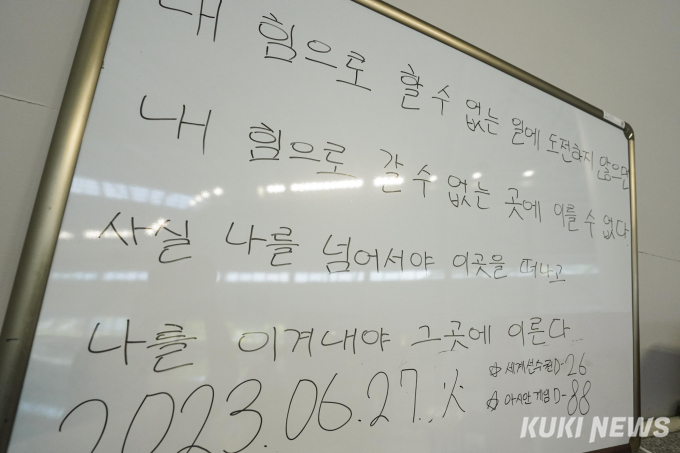 내 힘으로 할 수 없는 일에 도전하지 않으면
내 힘으로 갈 수 없는 곳에 이를 수 없다
사실 나를 넘어서야 이곳을 떠나고
나를 이겨내야 그곳에 이른다
2023.06.27. 火
☆ 세계선수권 D-26
☆ 아시안게임 D-88
KUKI NEWS